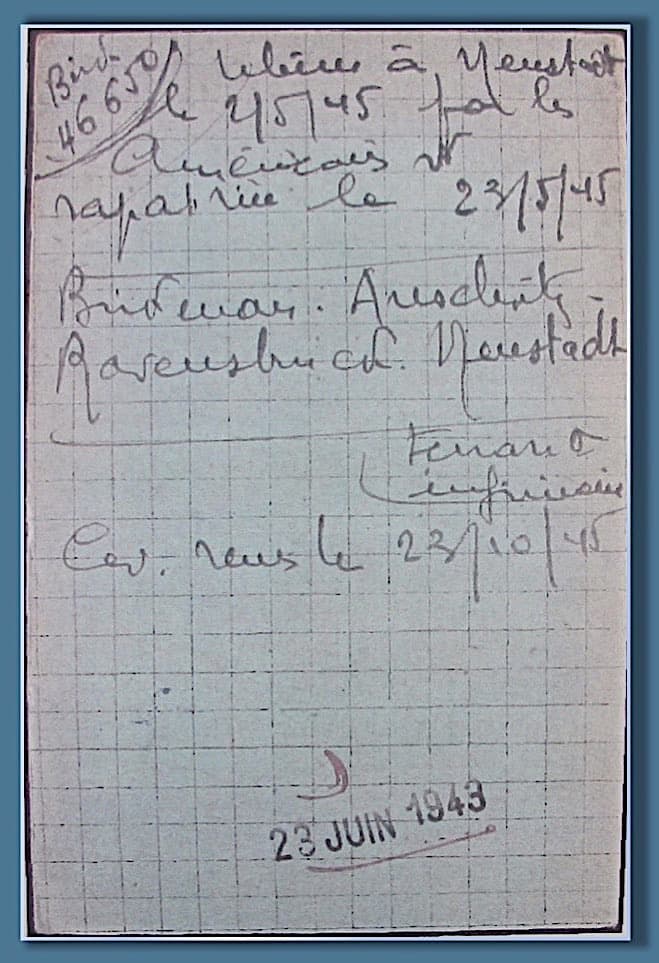 Birk.
46650
libérée à Neustadt
le 2/5/45 par les
Américains et
rapatriée le 23/5/45
Birkenau. Auschwitz.
Ravensbruck. Neustadt
infirmière
le 23/10/45
D
23 JUIN 1943